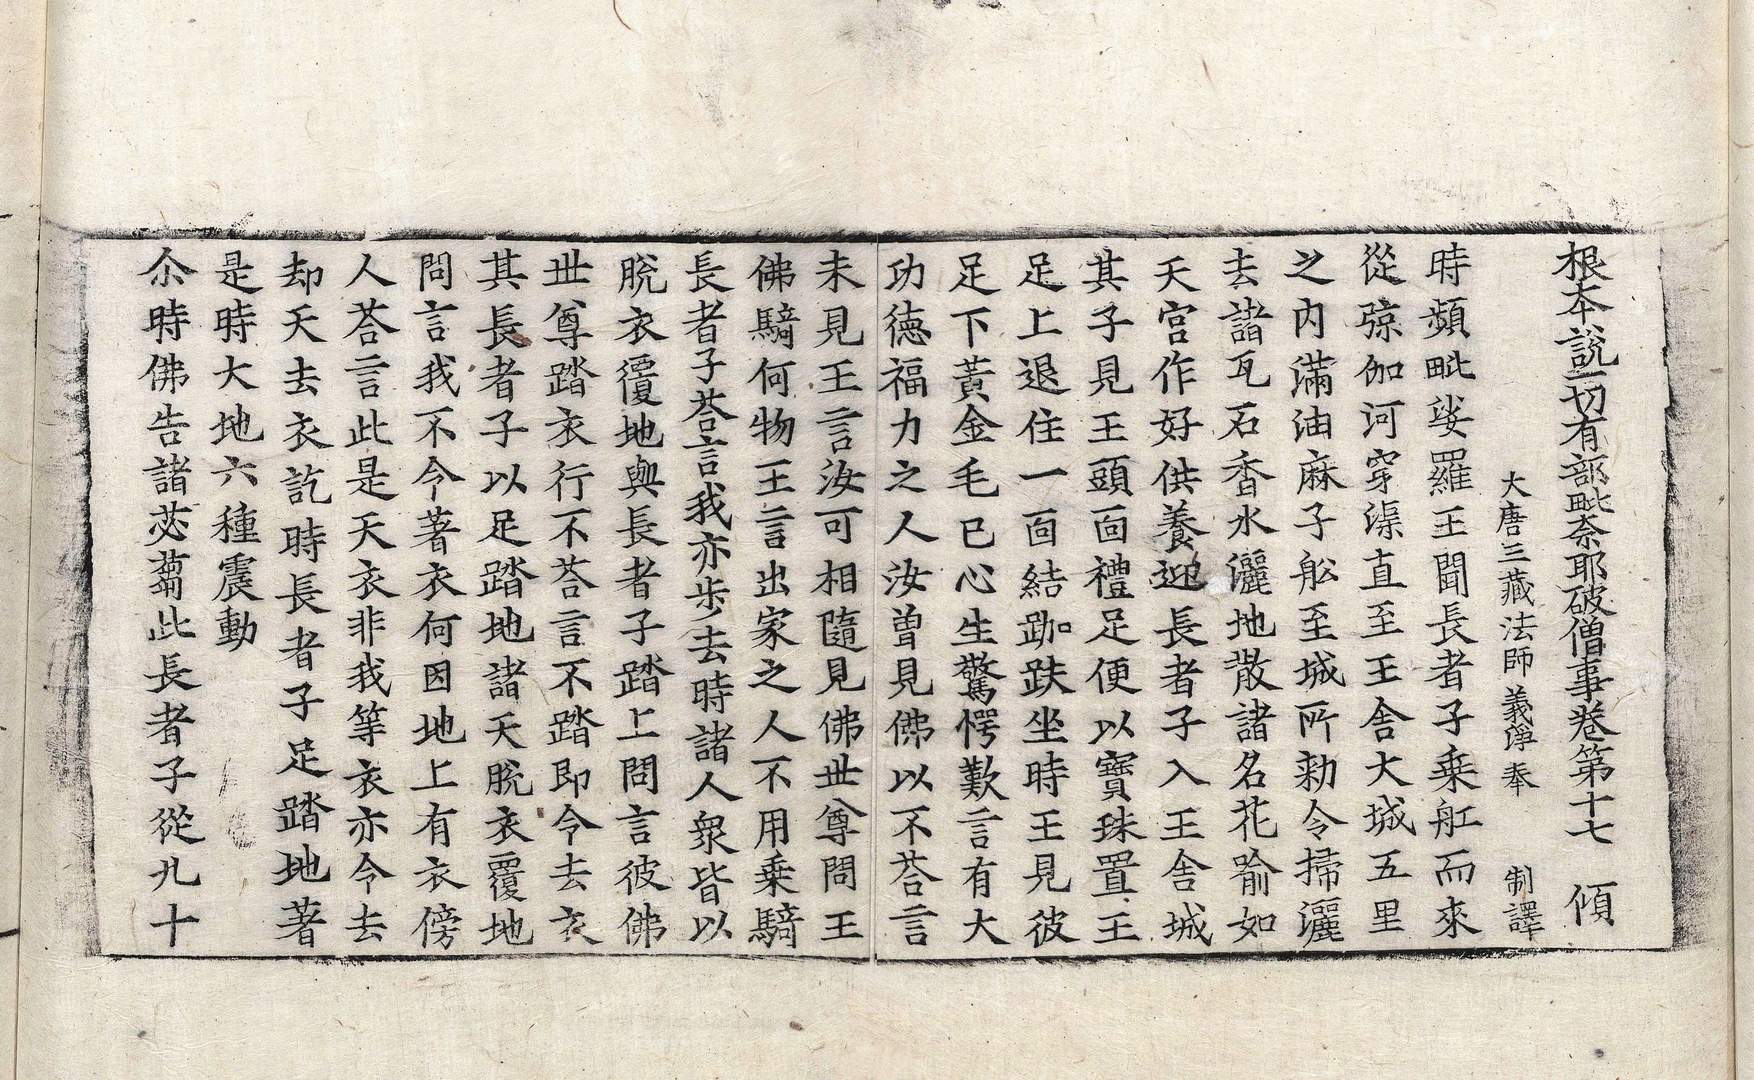 根本說一切有部毗奈耶破僧事卷第十七　傾
大唐三藏法師義淨奉　制譯
時頻毗娑羅王聞長者子乘舡而來
從弶伽河穿渠直至王舍大城五里
之內滿油麻子舩至城所勑令掃灑
去諸瓦石香水灑地散諸名花喻如
天宮作好供養迎長者子入王舍城
其子見王頭面禮足便以寶珠置王
足上退住一面結跏趺坐時王見彼
足下黃金毛已心生驚愕歎言有大
功德福力之人汝曾見佛以不荅言
未見王言汝可相隨見佛世尊問王
佛騎何物王言出家之人不用乘騎
長者子荅言我亦步去時諸人衆皆以
脫衣覆地與長者子踏上問言彼佛
世尊踏衣行不荅言不踏即令去衣
其長者子以足踏地諸天脫衣覆地
問言我不令著衣何因地上有衣傍
人荅言此是天衣非我等衣亦令去
却天去衣訖時長者子足踏地著
是時大地六種震動
尒時佛告諸苾蒭此長者子從九十